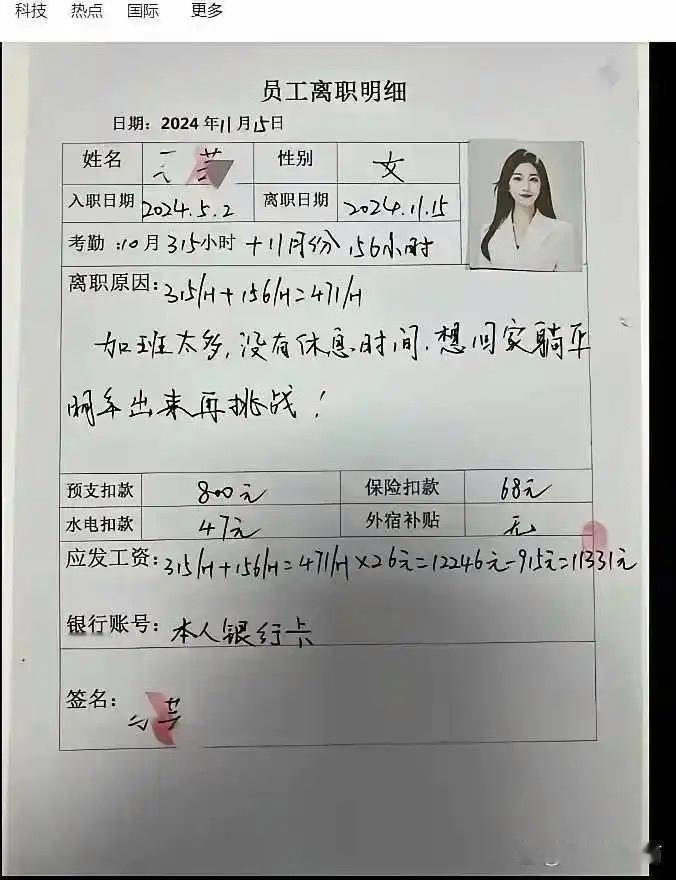 科技 热点 国际 更多
员工离职明细
日期：2024年11月15日
姓名 性别 女
入职日期 2024.5.2 离职日期 2024.11.15
考勤：10月315小时+11月份156小时
离职原因：315/H+156/H=471/H
加班太多,没有休息时间.想回家躺平
明年出来再挑战！
预支扣款 800元 保险扣款 68元
水电扣款 47元 外宿补贴 无
应发工资：315/H+156/H=471/H×26元=12246元-915元=11331元
银行账号：本人银行卡
签名：